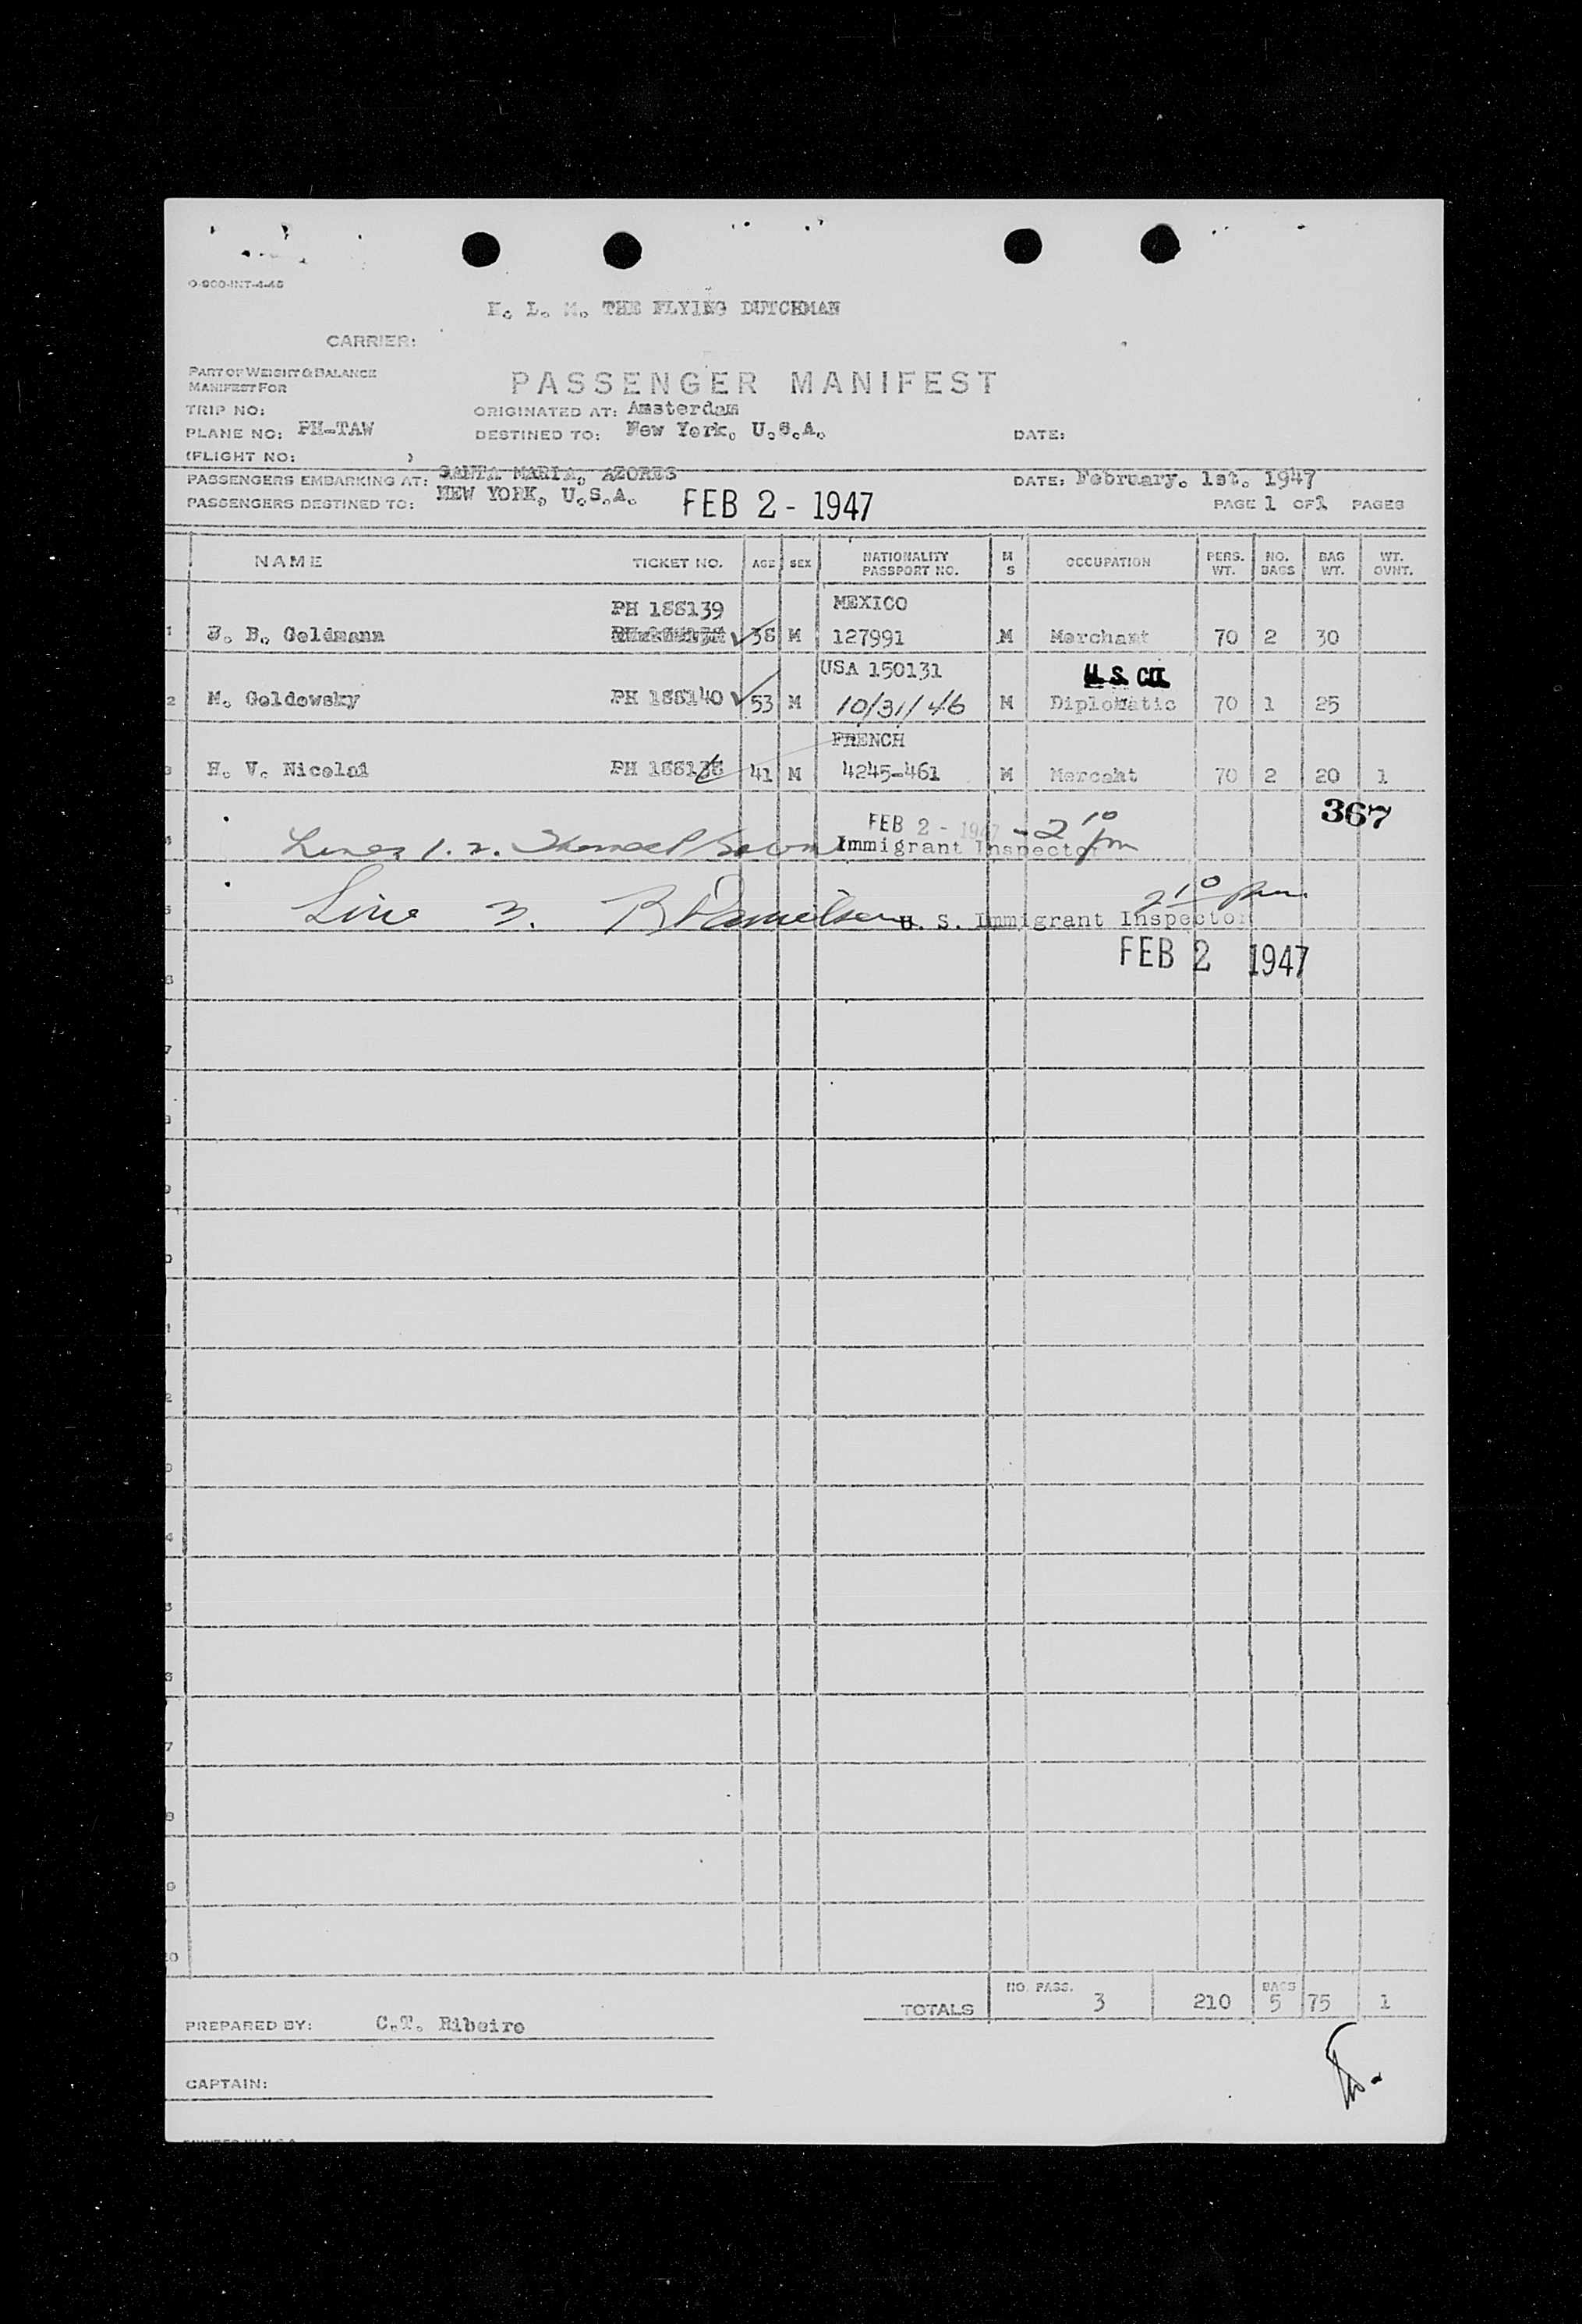 O-900-INT-4-46
K. L. M. THE FLYING DUTCHMAN
CARRIER:
PART OF WEIGHT & BALANCE
MANIFEST FOR
PASSENGER MANIFEST
TRIP NO:
ORIGINATED AT: Amsterdam
PLANE NO: PH-TAW
DESTINED TO: New York, U.S.A.
DATE:
(FLIGHT NO: )
PASSENGERS EMBARKING AT: SANTA MARIA, AZORES
DATE: February. 1st. 1947
PASSENGERS DESTINED TO: NEW YORK, U.S.A.
FEB 2 - 1947
PAGE 1 OF 1 PAGES
NAME TICKET NO. AGE SEX NATIONALITY PASSPORT NO. M S OCCUPATION PERS. WT. NO. BAGS BAG WT. WT. OVNT.
PH 188139 MEXICO
1 B. Goldmann 38 M 127991 M Merchant 70 2 30
USA 150131 U.S. CIT.
2 M. Goldowsky PH 188140 53 M 10/31/46 M Diplomatic 70 1 25
FRENCH
3 H. V. Nicolai 41 M 4245-461 M Mercaht 70 2 20 1
367
FEB 2 - 1947 - 2 10 pm
4 Lines 1. 2. Thomas P Immigrant Inspector
2 10 pm
5 Line 3. U. S. Immigrant Inspector
FEB 2 1947
6
7
8
9
0
1
2
3
4
5
6
7
8
9
0
TOTALS NO. PASS. 3 210 BAGS 5 75 1
PREPARED BY: C.T. Ribeiro
CAPTAIN: